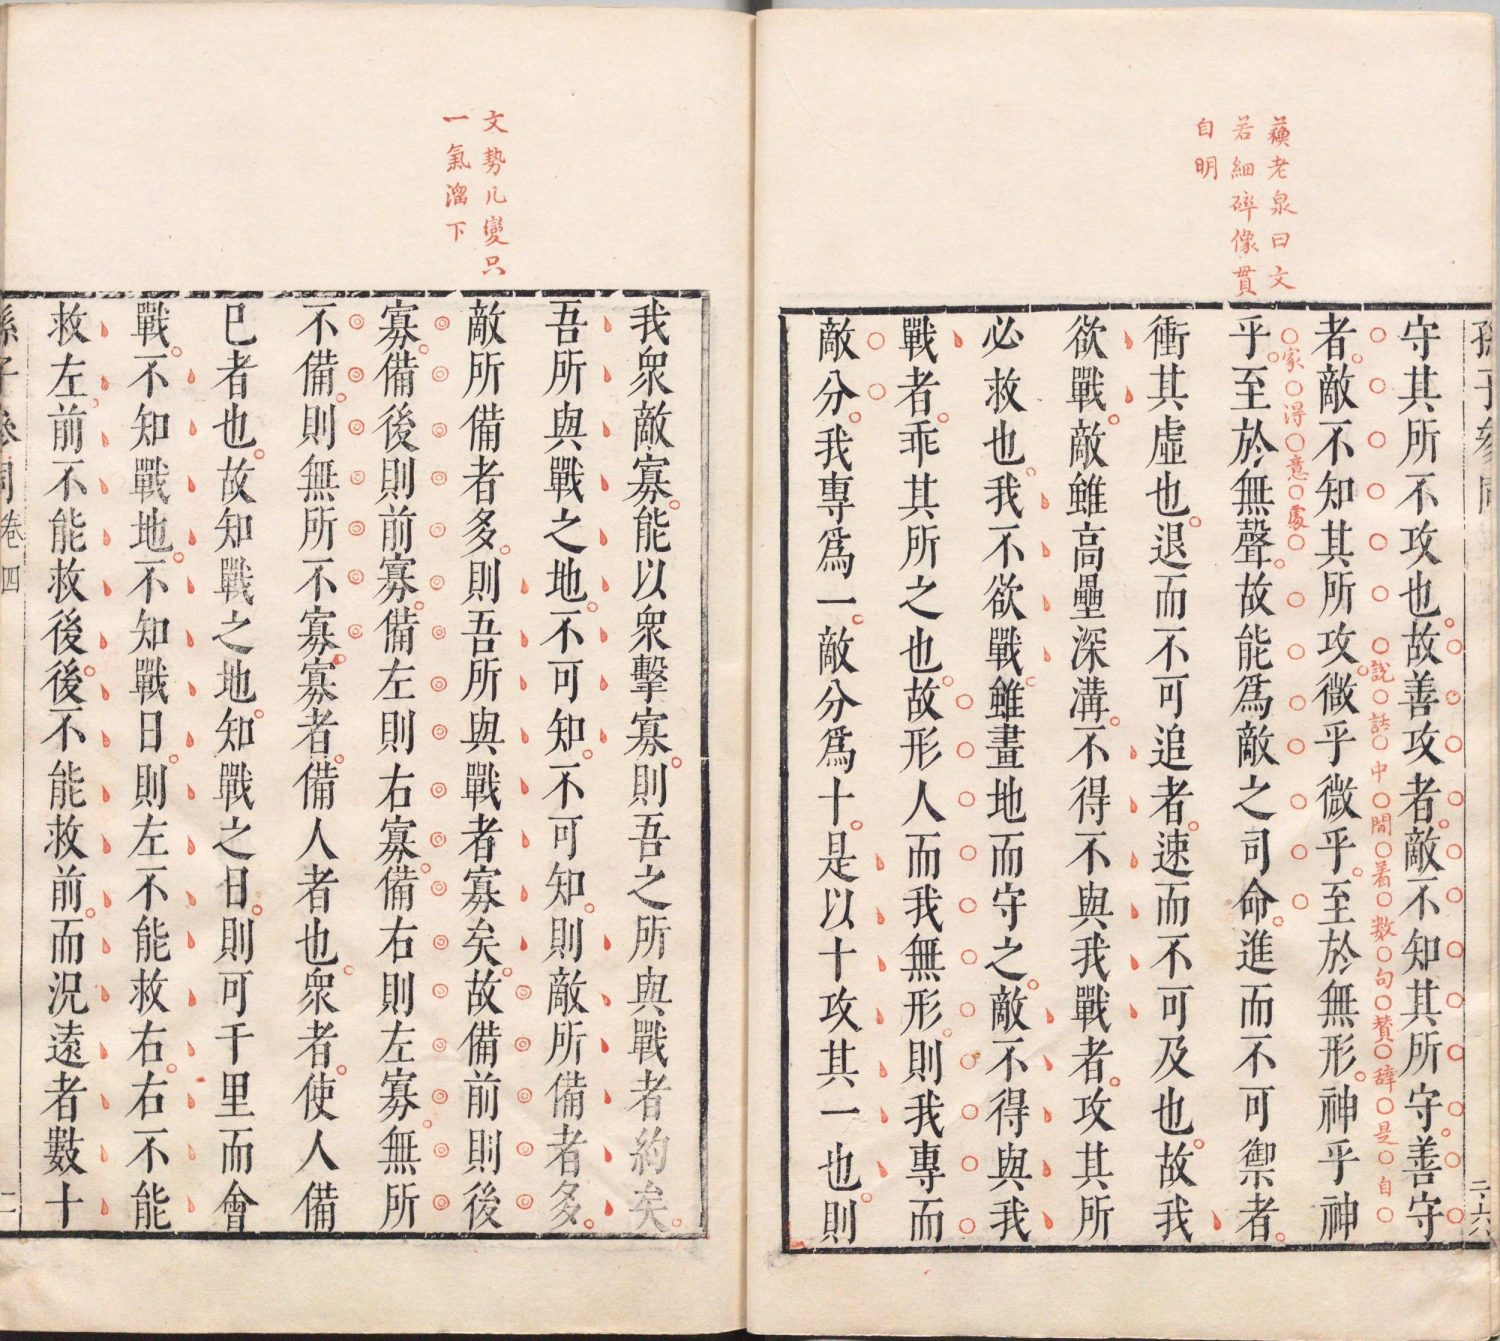 蘇老泉曰文
若細碎像貫
自明
守其所不攻也故善攻者敵不知其所守善守
者敵不知其所攻微乎微乎至於無形神乎神
說話中間着數句贊辭是自
家得意處
乎至於無聲故能爲敵之司命進而不可禦者
衝其虛也退而不可追者速而不可及也故我
欲戰敵雖高壘深溝不得不與我戰者攻其所
必救也我不欲戰雖畫地而守之敵不得與我
戰者乖其所之也故形人而我無形則我專而
敵分我專爲一敵分爲十是以十攻其一也則
文勢几變只
一氣溜下
我衆敵寡能以衆擊寡則吾之所與戰者約矣
吾所與戰之地不可知不可知則敵所備者多
敵所備者多則吾所與戰者寡矣故備前則後
寡備後則前寡備左則右寡備右則左寡無所
不備則無所不寡寡者備人者也衆者使人備
已者也故知戰之地知戰之日則可千里而會
戰不知戰地不知戰日則左不能救右右不能
救左前不能救後後不能救前而況遠者數十
卷四